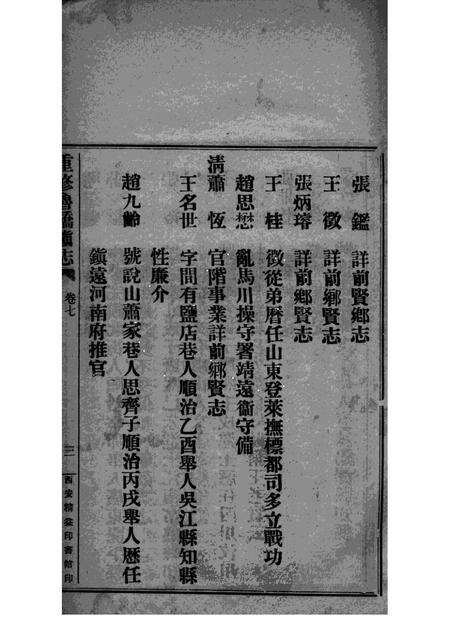 張鑑 詳前賢鄉志
王徵 詳前鄉賢志
張炳璿 詳前鄉賢志
王桂 徵從弟曆任山東登萊撫標都司多立戰功
趙思懋 亂馬川操守署靖遠衞守備
淸蕭恆 官階事業詳前鄉賢志
王名世 字間有鹽店巷人順治乙酉舉人吳江縣知縣
性廉介
趙九齡 號說山蕭家巷人思齊子順治丙戌舉人歷任
鎭遠河南府推官
重修魯橋鎭志 卷七 二 西安精益印書館印